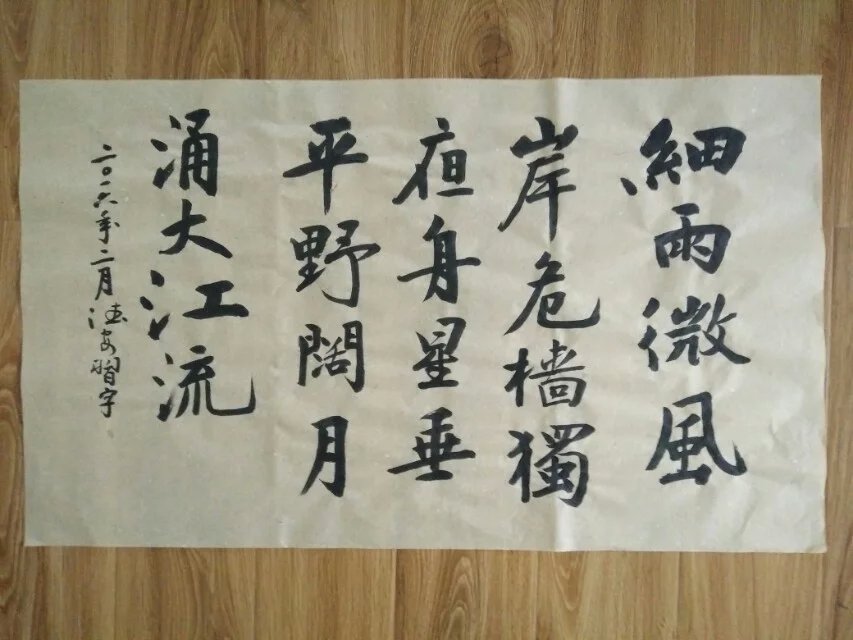 細雨微風
岸危檣獨
夜舟星垂
平野闊月
涌大江流
二〇一六年二月習字